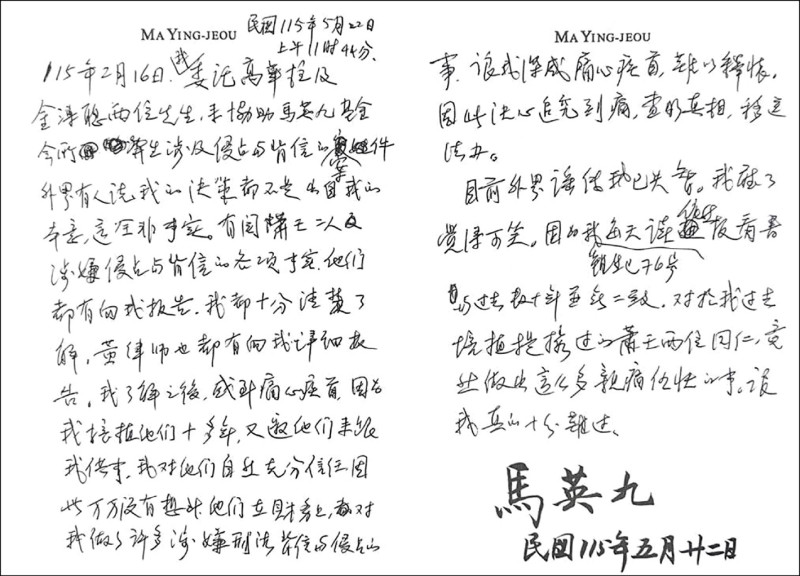 MA YING-JEOU
民國115年5月22日
上午11时44分.
115年2月16日,我委託高華柱及
金溥聰兩位先生,來協助馬英九基金
会所發生涉及侵占与背信的案件
外界有人說我的決策都不是出自我的
本意,這全非事实。有関蕭王二人及
涉嫌侵占与背信的各項事实,他們
都有向我报告,我都十分清楚了
解,黃律师也都有向我详细报
告。我了解之後,感到痛心疾首,因为
我培植他們十多年,又邀他們來跟
我做事,我对他們自然充分信任,因
此万万沒有想到,他們在財务上,都对
我做了許多涉嫌刑法背信与侵占的
MA YING-JEOU
事,讓我深感痛心疾首,難以釋懷。
因此決心追究到底,查明真相,移送
法办。
目前外界謠传我已失智。我聽了
覺得可笑。因为我每天读报看書
与过去数十年並無二致。对於我过去
培植提攜过的蕭王兩位同仁,竟
然做出這么多親痛仇快的事,讓
我真的十分難过。
馬英九
民國115年五月廿二日